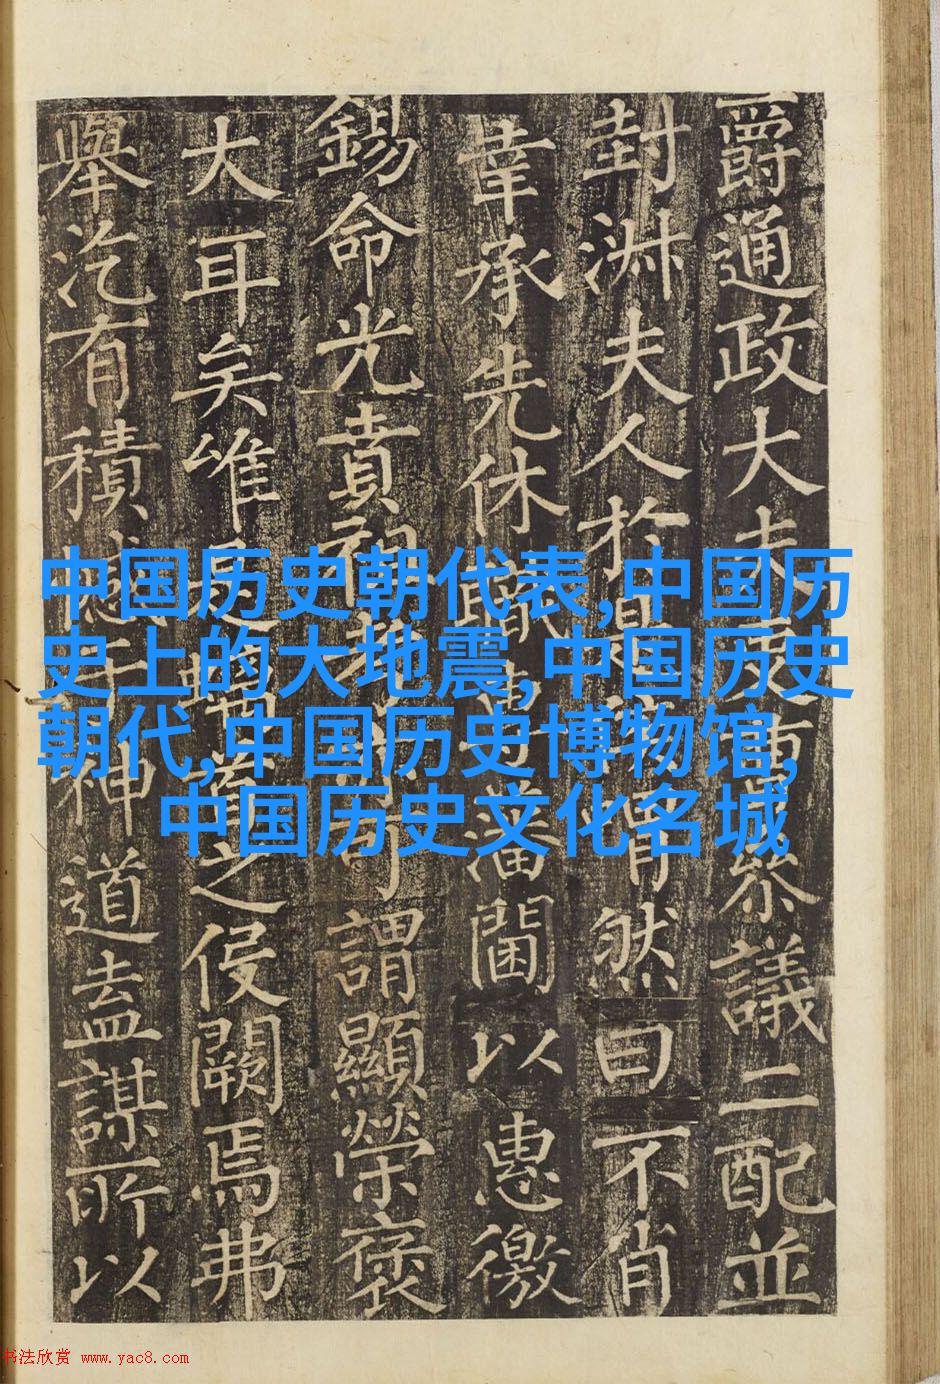 爵通政大夫議二配並
封淑夫人於然曰不肖
幸承先休職藩閫以惠徼
錫命光賁祖可謂顯榮褒
大耳矣唯是道之侵闕焉弗
舉汔有積神道盍謀所以
中国历史朝代表,中国历
史上的大地震,中国历史
朝代,中国历史博物馆,
中国历史文化名城
书法欣赏 www.yac8.com